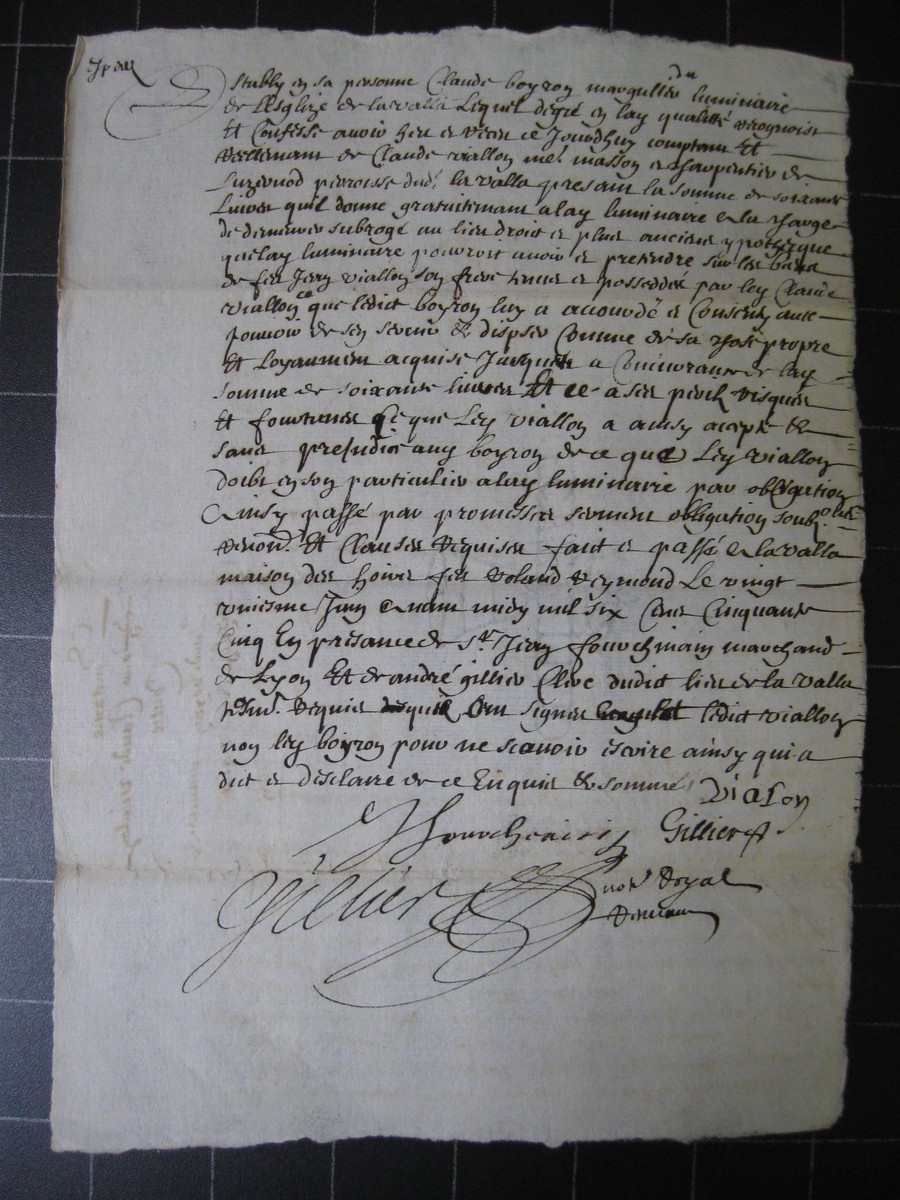 du
Estably en sa personne Claude boyron marguillier luminaire
de l'Esglize de la valla Lequel de gré en lad. qualitté recognoist
Et Confesse avoir heu et receu ce Jourdhuy comptant Et
reellemant de Claude viallon me. masson et charpentier de
Luzernod parroisse dud. la valla presant la somme de soixante
Livres quil donne gratuitemant alad. luminaire a la charge
de demeurer subrogé au lieu droict et plus ancienne ypotheque
que lad. luminaire pouvroit avoir et pretendre sur les biens
de feu Jean viallon son frere tenus et possedés par led. Claude
viallon ce que ledict boyron luy a accourdé et Consenty avec
pouvoir de sen servir & disposer Comme de sa chose propre
Et Loyaument acquise Jusques a Concurrance de lad.
somme de soixante livres Et ce a ses perilz risques
Et fourtunes Ce que Led. viallon a ainsy accepté &
sans prejudice aud. boyron de ce que Led. viallon
doibt en son particulier alad. luminaire par obligation
Ainsy passé par promesses serment obligation soubz.
renon. Et Clauses requises faict et passé a la valla
maison des hoirs feu Roland Reymond Le vingt
uniesme Juin avant midy mil six Cens Cinquante
Cinq En presance de sr. Jean fourchinain marchand
de Lyon Et de andré gillier Clerc dudict lieu de la valla
tesm. requis quil Ont signés ledict viallon
non led. boyron pour ne scavoir escrire ainsy qui a
dict et desclaire de ce Enquis & sommé Vialon
Gillier
Gillier not. Royal